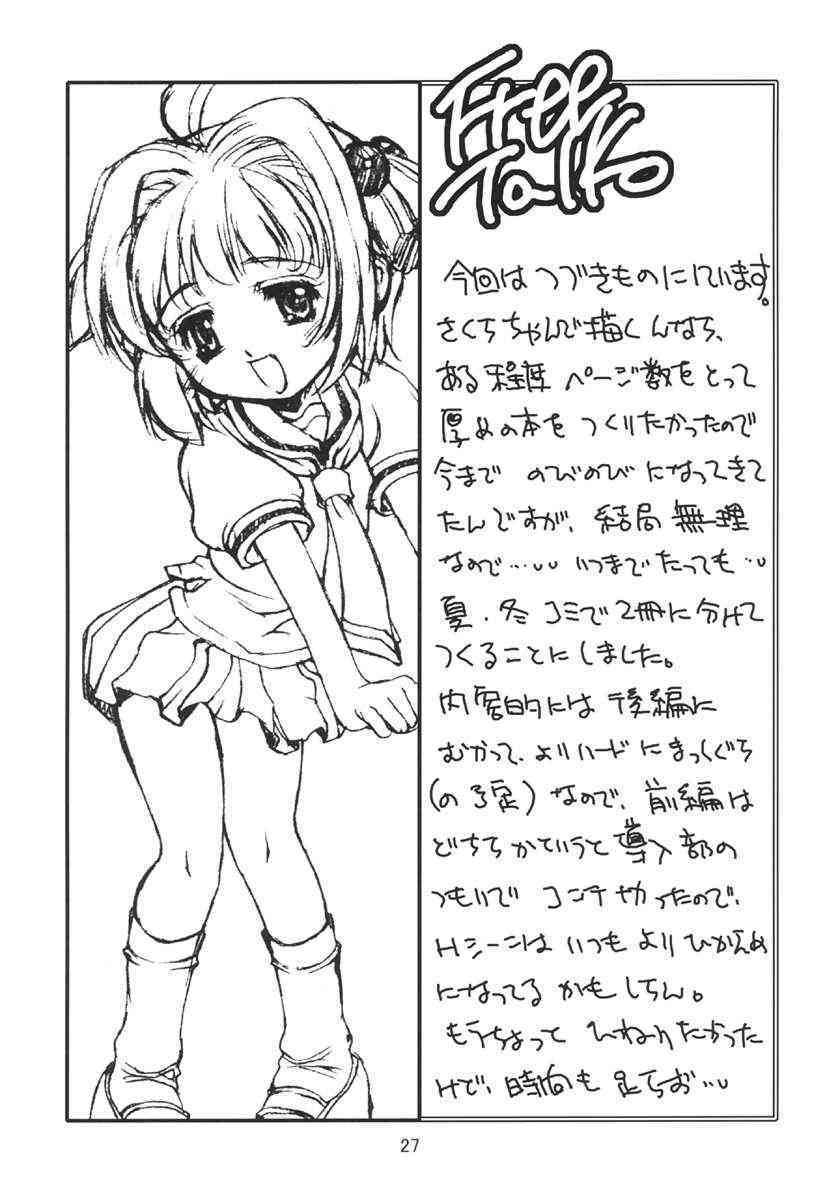 Free
Talk
今回は つづきものにしています。
さくらちゃんで描くんなら、
ある程度 ページ数をとって
厚めの本を つくりたかったので
今まで のびのびになってきて
たんですが、結局 無理
なので…… いつまでたっても…
夏・冬 コミで2冊に分けて
つくることにしました。
内容的には 後編に
むかって、よりハードにまっしぐら
(の予定) なので、前編は
どちらかていうと導入部の
つもりで コンテやったので、
Hシーンは いつもより ひかえめ
になってる かもしらん。
もうちょっと ひねりたかった
けど、時間も 足らず…
27